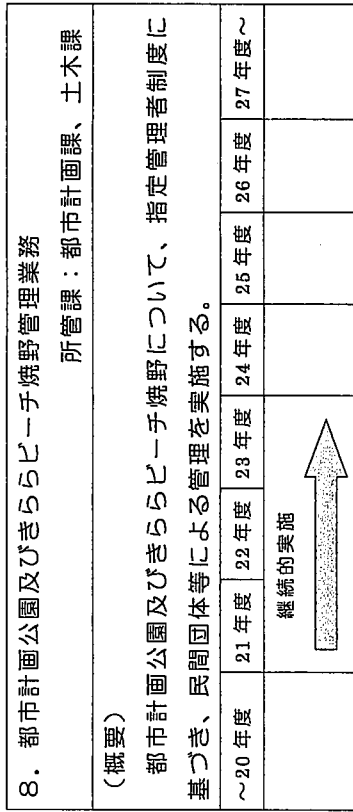 8．都市計画公園及びきららビーチ焼野管理業務
所管課：都市計画課、土木課
（概要）
都市計画公園及びきららビーチ焼野について、指定管理者制度に
基づき、民間団体等による管理を実施する。
～20年度 21年度 22年度 23年度 24年度 25年度 26年度 27年度～
継続的実施